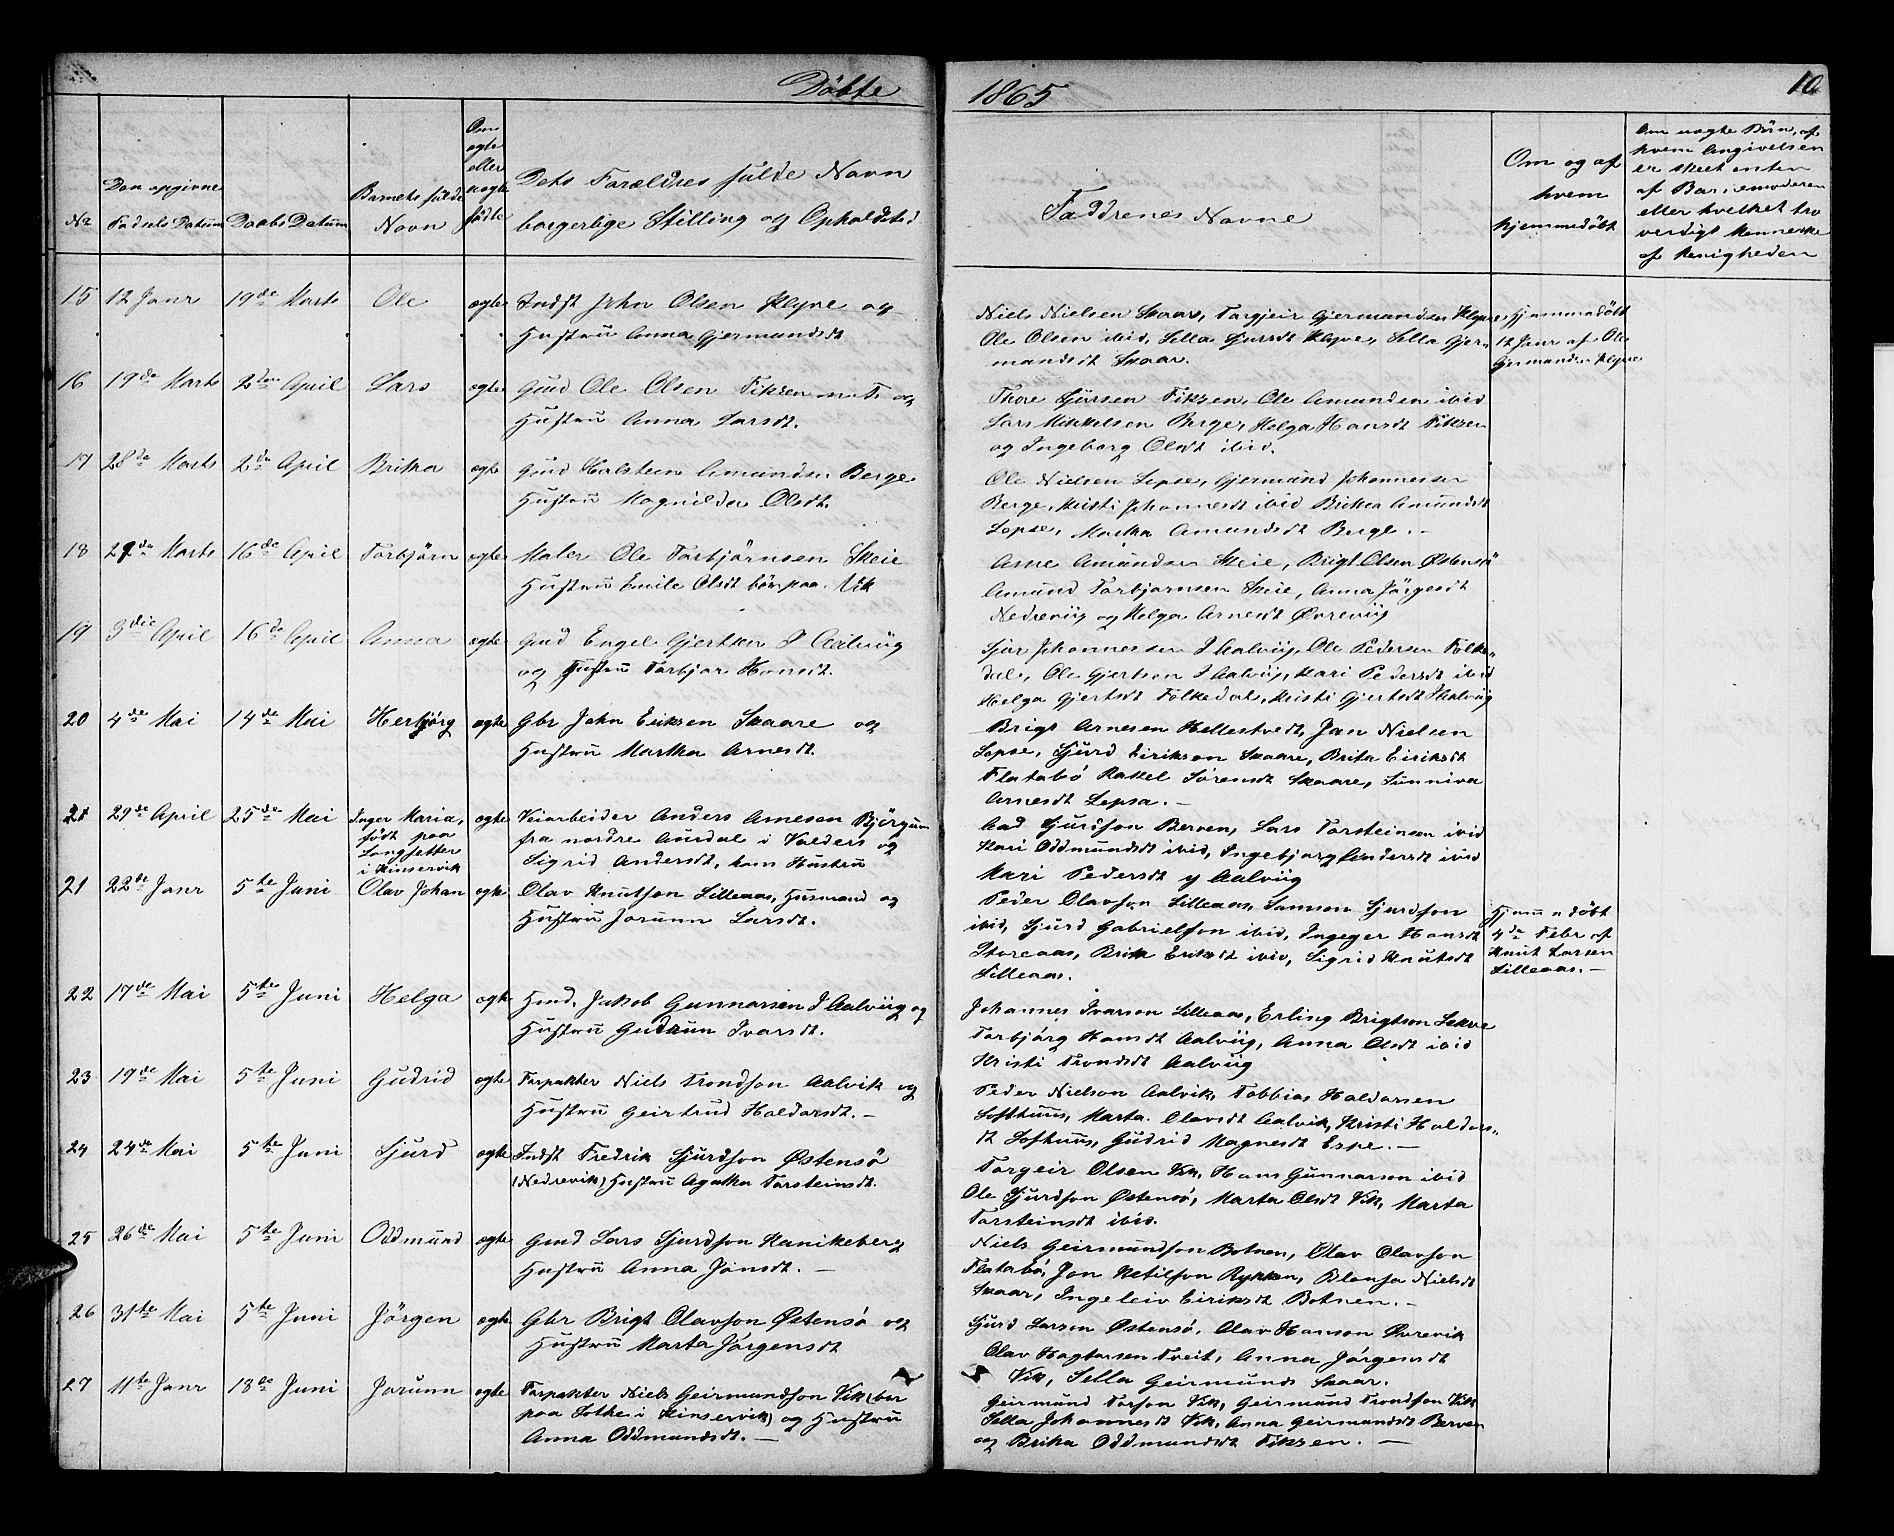 Döbte
1865
10
No
Den opgivne Fødsels Datum
Daabs Datum
Barnets fulde Navn
Om ægte eller uægte fødte
Dets Forældres fulde Navn borgerlige Stilling og Opholdsted
Faddrenes Navne
Om og af hvem hjemmedöbt
Om uægte Börn, af hvem Angivelsen er skeet enten af Barnemoderen eller hvilket troværdigt Menneske af Menigheden
15 12 Janr 19de Marts Ole ægte Indst John Olsen Klyve og
Hustru Anna Gjermundsdt
Niels Nielsen Skaar, Torgjeir Gjermundsen Klyve,
Ole Olsen ibid, Sella Sjursdt Klyve, Sella Gjer-
mundsdt Skaar.
Hjemmedöbt
12 Janr af Ole
Gjermundsen Klyve
16 19de Marts 2den April Lars ægte Gmd Ole Olsen Fiksen og
Hustru Anna Larsdt.
Thore Sjursen Fiksen, Ole Amunden ibid
Lars Mikkelsen Berge, Helga Hansdt Fiksen
og Ingeborg Olsdt ibid.
17 28de Marts 2de April Britha ægte Gmd Halstein Amundsen Berge
Hustru Magnilda Olsdt.
Ole Nielsen Lepse, Gjermund Johannessen
Berge, Kristi Johannesdt ibid Britha Amundsdt
Lepse, Martha Amundsdt Berge. -
18 29de Marts 16de April Torbjörn ægte Maler Ole Torbjörnsen Skeie
Hustru Emile Olsdt bor paa Vik
Arne Amundsen Skeie, Brigt Olsen Østensö
Amund Torbjornsen Skeie, Anna Jörgesdt
Nedreviig og Helga Arnesdt Øvreviig
19 3die April 16de April Anna ægte Gmd Engel Gjertsen I Aalviig
og Hustru Torbjor Hansdt.
Sjur Johannessen I Aalviig, Ole Pedersen Folke-
dal, Ole Gjertsen I Aalviig, Kari Pedersdt ibid
Helga Gjertsdt Folkedal, Kristi Gjertsdt I Aalviig
20 4de Mai 14de Mai Herbjörg ægte Gbr John Eriksen Skaare og
Hustru Martha Arnesdt.
Brigt Arnesen Hellestvedt, Jan Nielsen
Lepse, Sjurd Eirikson Skaare, Brita Eiriksdt
Flatabö Rakel Sörensdt Skaare, Sunniva
Arnesdt Lepsa. -
21 29de April 25de Mai Inger Maria,
født paa
Langsetter
i Kinservik
ægte Veiarbeider Anders Arnesen Björgum
fra nordre Aurdal i Valders og
Sigrid Andersdt, hans Hustru
Aad Sjurdson Berven, Lars Torsteinsen ibid
Kari Oddmundsdt ibid, Ingebjørg Andersdt ibid
Mari Pedersdt y Aalviig
21 22de Janr 5te Juni Olav Johan ægte Olav Knutson Lilleaas, Husmand og
Hustru Jorunn Larsdt.
Peder Olavson Lilleaas, Samson Sjurdson
ibid, Sjurd Gabrielson ibid, Ingeger Hansdt
Storeaas, Brita Eriksdt ibid, Sigrid Knutsdt
Lilleaas.
Hjemmedöbt
4de Febr af
Knut Larsen
Lilleaas. -
22 17de Mai 5te Juni Helga ægte Hmd. Jakob Gunnarsen I Aalviig og
Hustru Gudrun Ivarsdt.
Johannes Ivarson Lilleaas, Erling Brigtson Sekse
Torbjörg Hansdt Aalviig, Anna Olsdt ibid
Kristi Trondsdt Aalviig
23 19de Mai 5te Juni Gudrid ægte Forpakter Niels Trondson Aalvik og
Hustru Geirtrud Haldorsdt. -
Peder Nielson Aalvik, Tobbias Haldorsen
Lofthuus, Marta Olavsdt Aalvik, Kristi Haldors-
dt Lofthuus, Gudrid Magnesdt Espe. -
24 24de Mai 5te Juni Sjurd ægte Indst Fredrik Sjurdson Østensö
(Nedrevik) Hustru Agatha Torsteinsdt.
Torgeir Olsen Vik, Hans Gunnarson ibid
Ole Sjurdson Østensö, Marta Olsdt Vik, Marta
Torsteinsdt ibid.
25 26de Mai 5te Juni Oddmund ægte Gmd Lars Sjurdson Kanikeberg
Hustru Anna Jonsdt. -
Niels Geirmundson Botnen, Olav Olavson
Flatabö, Jon Ketilson Rykken, Blansa Nielsdt
Skaar, Ingeleiv Eiriksdt Botnen. -
26 31te Mai 5te Juni Jörgen ægte Gbr Brigt Olavson Østensö og
Hustru Marta Jörgensdt
Sjurd Larson Østensö, Olav Hanson Øvrevik
Olav Hagtorsen Tveit, Anna Jörgensdt
Vik, Sella Geirmunds Skaar.
27 11te Janr 18de Juni Jorunn ægte Forpakter Niels Geirmundson Vik (bor
paa Lothe i Kinservik) og Hustru
Anna Oddmundsdt. -
Geirmund Torson Vik, Geirmund Trondson Vik
Sella Johannesdt Vik, Anna Geirmundsdt Berven
og Britha Oddmundsdt Fiksen. -